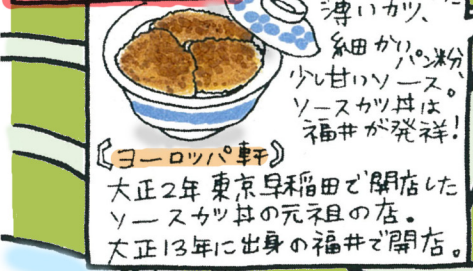 薄いカツ、
細かいパン粉、
少し甘いソース。
ソースカツ丼は
福井が発祥！
《ヨーロッパ軒》
大正2年東京早稲田で開店した
ソースカツ丼の元祖の店。
大正13年に出身の福井で開店。